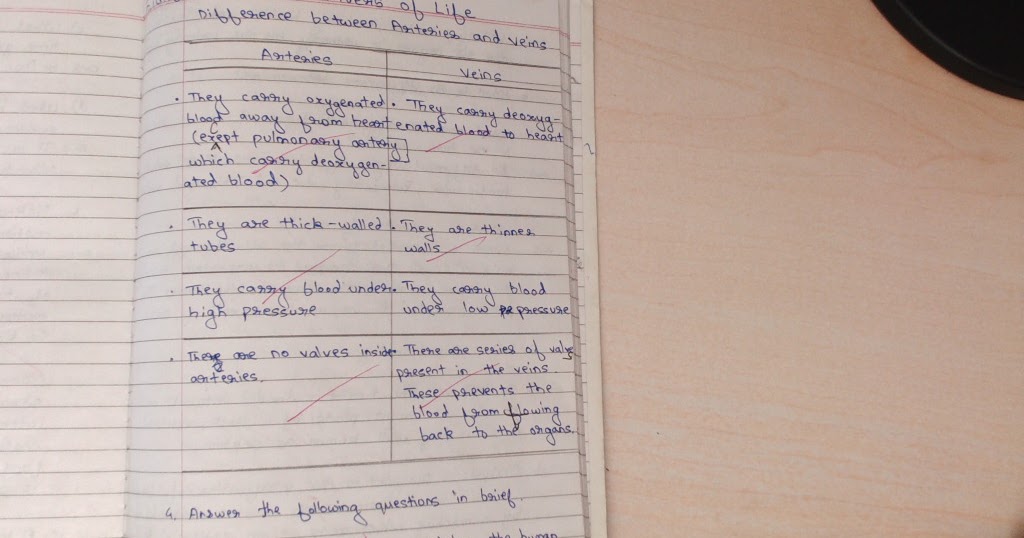 of Life
Difference between Arteries and veins
Arteries
Veins
• They carry oxygenated
blood away from heart
(exept pulmonary artery]
which carry deoxygen-
ated blood)
• They carry deoxyg-
enated blood to heart
• They are thick-walled
tubes
• They are thinner
walls
• They carry blood under
high pressure
• They carry blood
under low pressure
• There are no valves inside
arteries.
• There are series of valvs
present in the veins
These prevents the
blood from flowing
back to the organs.
4. Answer the following questions in brief.
the human